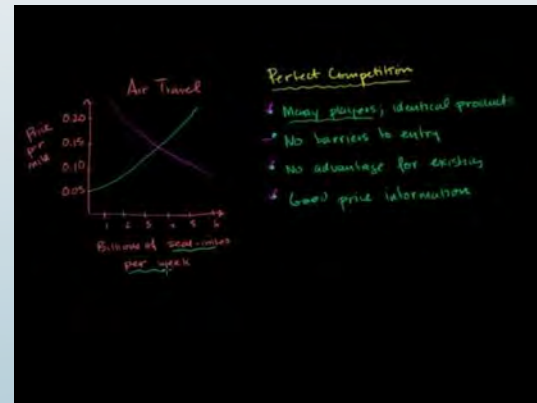 Air Travel
Price
per
mile
0.20
0.15
0.10
0.05
1 2 3 4 5 6
Billions of seat-miles
per week
Perfect Competition
Many players, identical products
No barriers to entry
No advantage for existing
Good price information